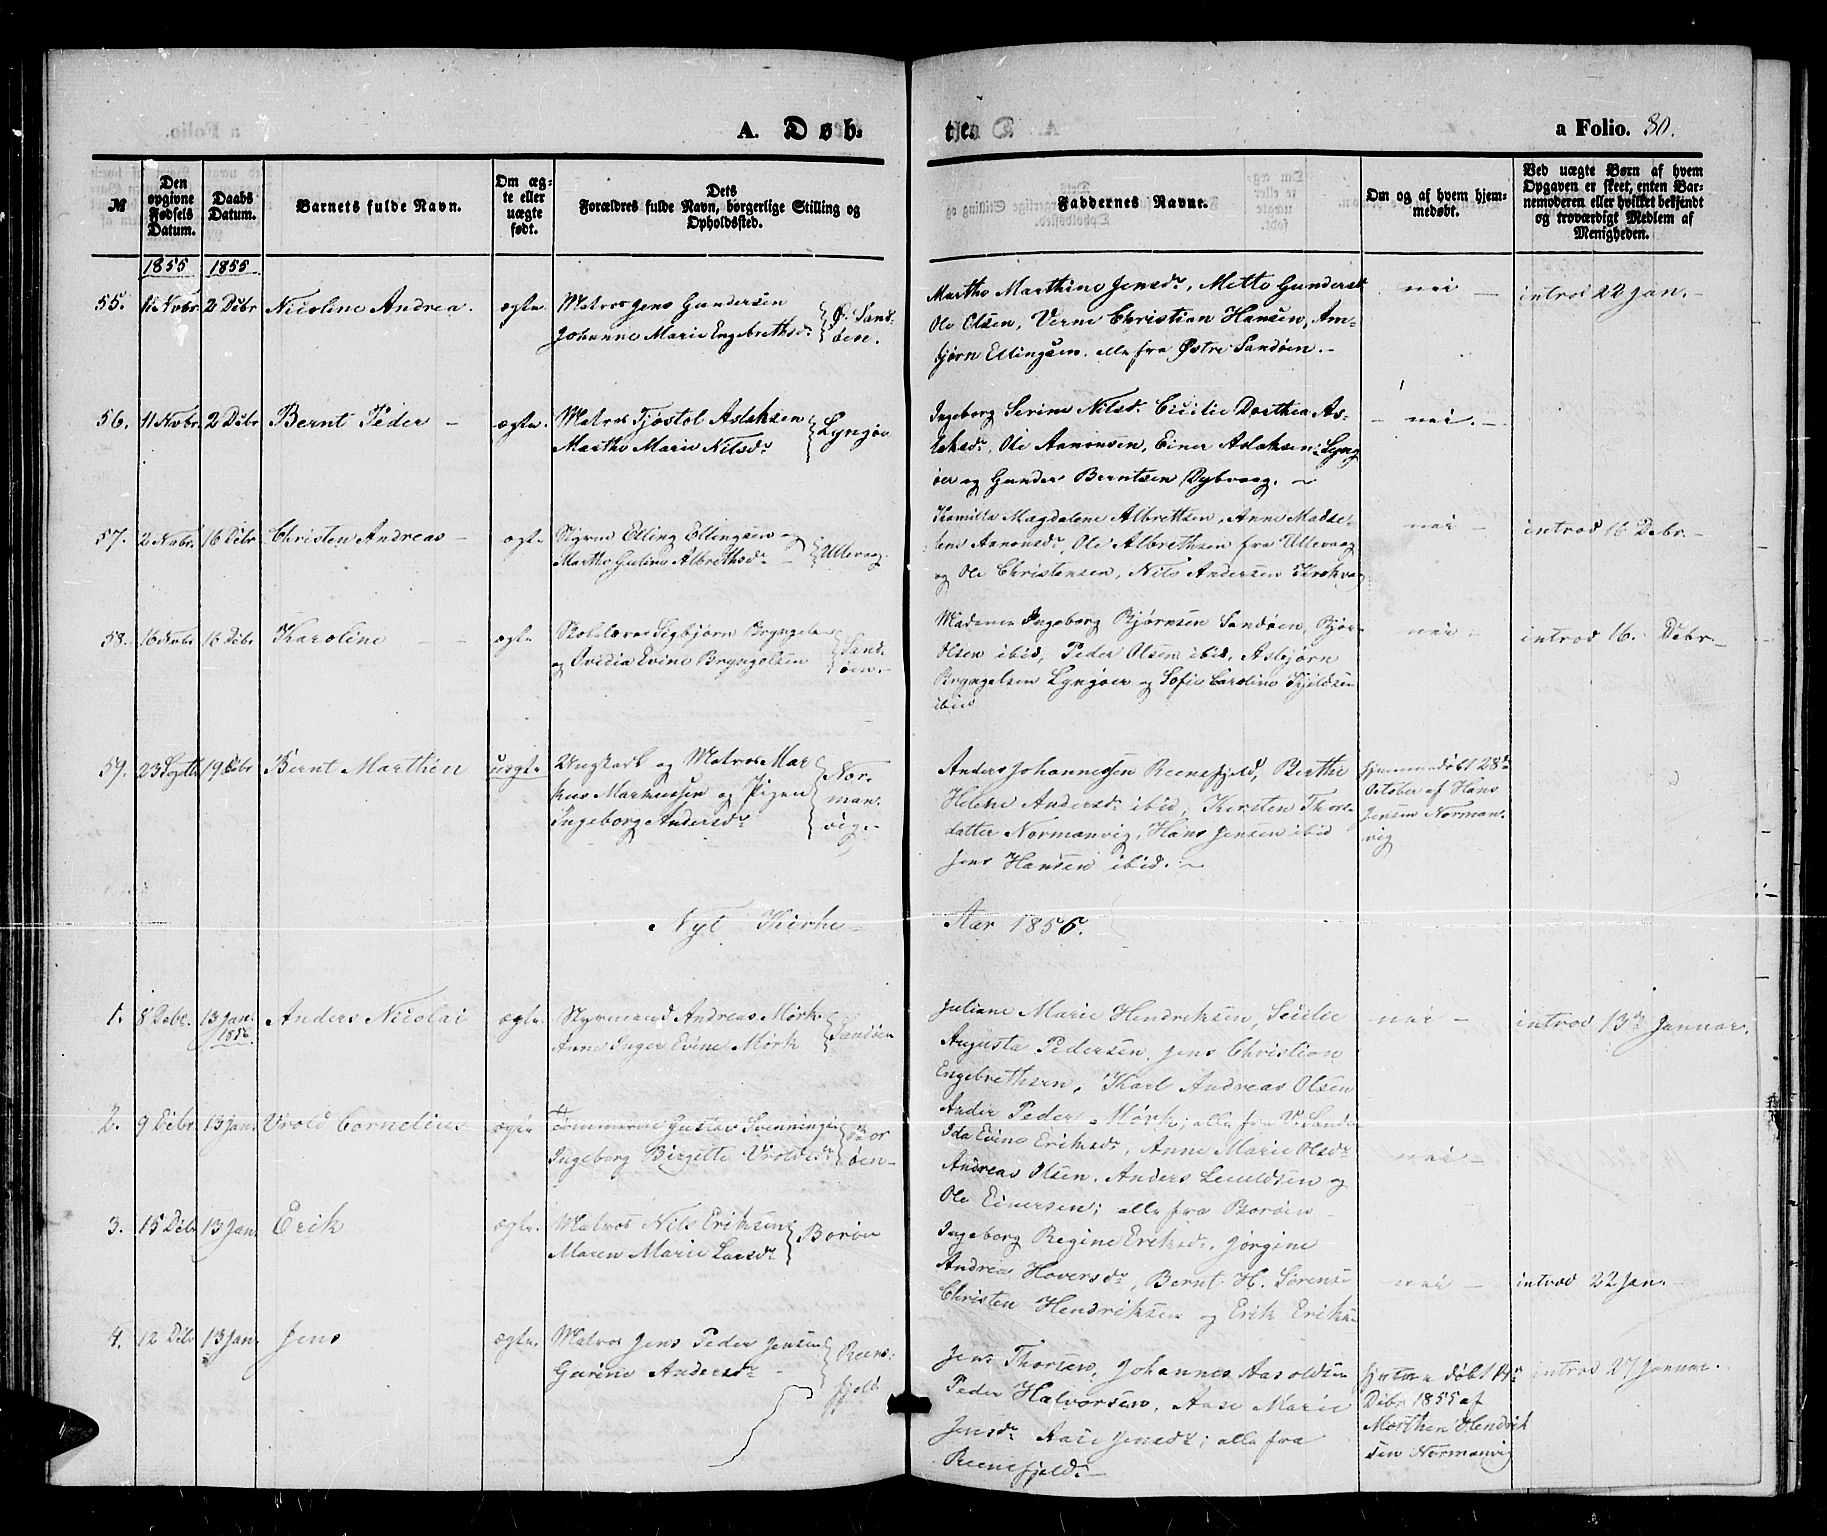 A. Døb-
te
a Folio. 80.
№
Den opgivne Fødsels Datum.
Daabs Datum.
Barnets fulde Navn.
Om ægte eller uægte født.
Dets Forældres fulde Navn, borgerlige Stilling og Opholdssted.
Faddernes Navne.
Om og af hvem hjemmedøbt.
Ved uægte Børn af hvem Opgaven er skeet, enten Barnemoderen eller hvilket bekjendt og troværdigt Medlem af Menigheden.
1855 1855
55. Novbr 2 Debr Nicoline Andrea. ægte. Matros Jens Gundersen
Johanne Marie Engebrethsdr Ø. Sandøen.
Marthe Marthine Jensdr, Mette Gundersdr
Ole Olsen, Verne Christian Hansen, Am-
bjørn Ellingsen, alle fra Østre Sandøen.
nei — introd 22 Jan. —
56. 11 Novbr. 2 Debr Bernt Peder — ægte. Matros Tjøstol Aslaksen
Marthe Marie Nilsdr Lyngøe
Ingeborg Serine Nilsd. Cicilie Dorthea As-
laksdr, Ole Aanonsen, Einer Aslaksen Lyng
øer og Gunder Berntsen Dybvaag. —
— nei. —
57. 2 Novbr. 16 Debr Christen Andreas — ægte Styrm Elling Ellingsen og
Marthe Guline Albrethsdr — Ullevaag
Kamilla Magdalene Albrettsen, Anne Madse-
lene Aanonsdr, Ole Albrethsen fra Ullevaag
og Ole Christensen, Nils Andersen Kirkvaag
nei — introd 16 Debr. —
58. 16 Novbr 16 Debr Karoline — ægte Skolelærer Sigbjørn Bryngelsen
og Ovidia Evine Bryngelsen Sandøen.
Madame Ingeborg Bjørnsen Sandøen, Bjør
Olsen ibid, Peder Olsen ibid, Asbjørn
Bryngelsen Lyngøer og Sofie Caroline Kjeldsen
ibid
nei — introd 16. Debr.
59. 23 Septb 19 Debr Bernt Marthin uægte Ungkarl og Matros Mar
kus Markussen og Pigen
Ingeborg Andersdr Normanvig.
Anders Johannessen Reenesfjeld, Berthe
Helene Andersdr ibid, Kirsten Thors-
datter Normanvig, Hans Jensen ibid
Jens Hansen ibid. —
Hjemmedøbt 28de
October af Hans
Jensen Norman-
vig
Nyt Kirke- Aar 1856.
1. 8 Debr. 13 Jan. 1856 Anders Nicolai ægte. Styrmand Andreas Mørk
Anne Inger Evine Mørk Sandøen
Juliane Marie Hendriksen, Secilie
Augusta Pedersen, Jens Christian
Engebrethsen, Karl Andreas Olsen
Peder Mørk; alle fra V. Sandø
nei — introd 13de Januar.
2. 9 Debr. 13 Jan. Vrold Cornelius ægte Tømmermd Gustav Svenningsen
Ingeborg Birgitte Vroldsdr Borøen —
Ida Evine Eriksdr, Anne Marie Olsdr
Andreas Olsen, Anders Leuvldsen og
Ole Einersen; alle fra Borøen —
nei —
3. 15 Debr 13 Jan. Erik ægte. Matros Nils Eriksen
Maren Marie Larsdr Borøen
Ingeborg Regine Eriksdr, Jørgine
Andrea Hoversdr, Bernt H. Sørense
Christen Hendriksen og Erik Eriks-
nei — introd 22 Jan.
4. 12 Debr 13 Jan. Jens ægte. Matros Jens Peder Jensen
Gurine Andersdr — Reensfjeld
Jens Thorsen, Johannes Aasoldsen
Peder Halvorsen, Aase Marie
Jensdr Aase Jensdr; alle fra
Reensfjeld. —
Hjemmedøbt 14de
Debr 1855 af
Morthen Hendrik
sen Normanvig
introd 27 Januar.